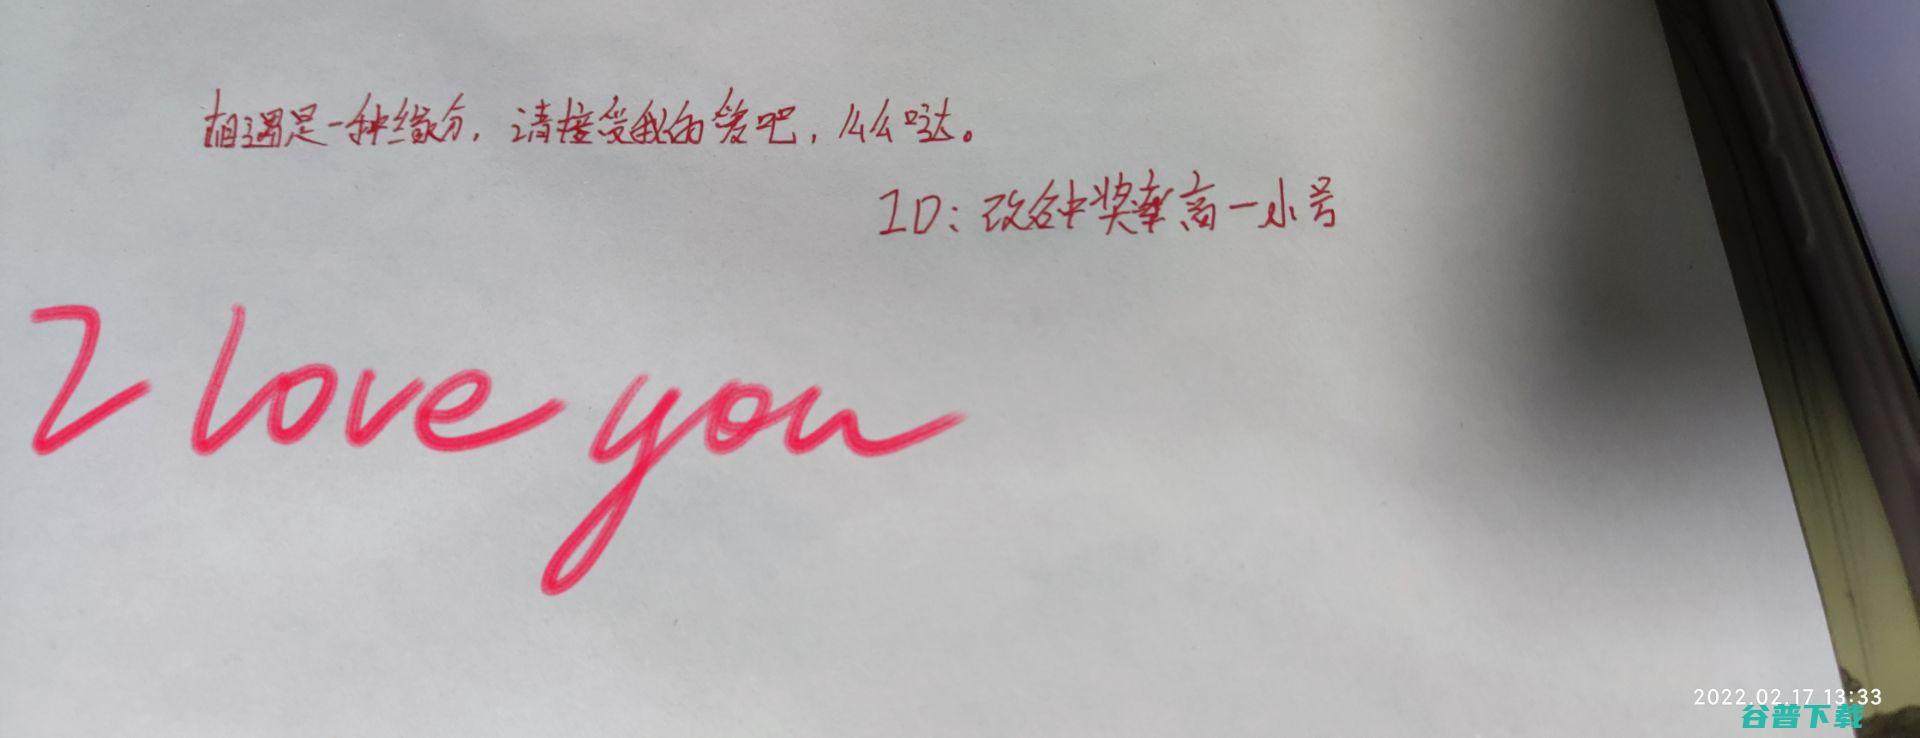 相遇是一种缘分，请接受我的爱吧，么么哒。
ID：改名中奖率高一小号
I love you
2022.02.17 13:33
谷普下载